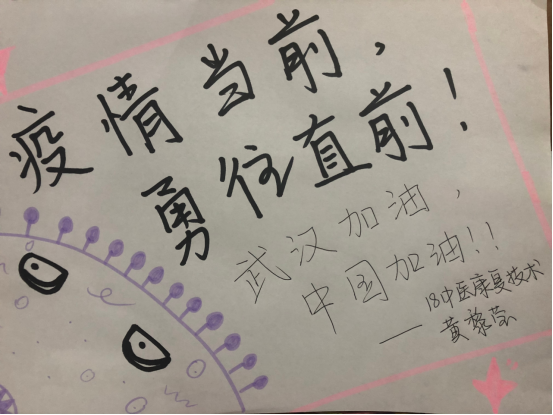 疫情当前，
勇往直前！
武汉加油，
中国加油！！
18中医康复技术
—— 黄黎莹